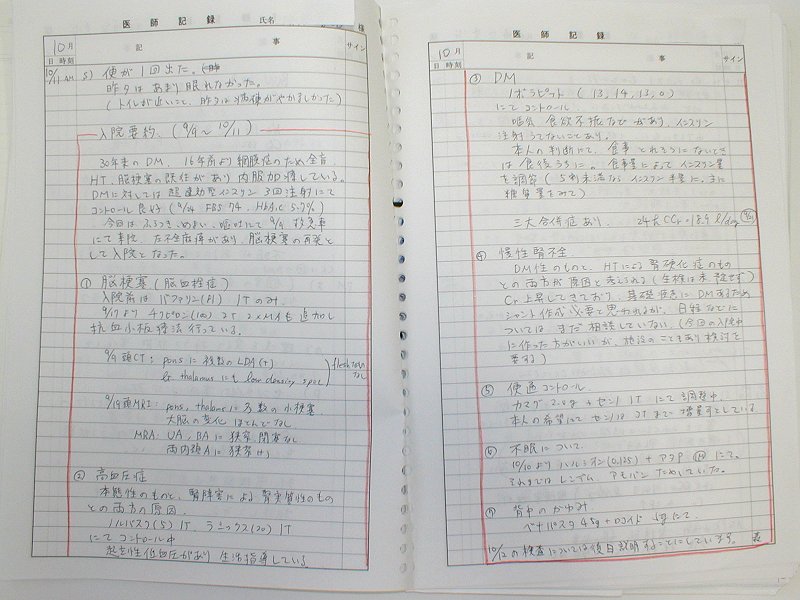 医 師 記 録 氏名 様
10月 記 事 サイン
日 時刻
10/11 AM S) 便が1回出た。
昨夕はあまり眠れなかった。
(トイレが近いこと、昨夕は
入院要約 (9/9〜10/11)
30年来のDM、16年前より網膜症のため全盲
HT、脳梗塞の既往があり内服加療している。
DMに対しては超速効型インスリン3回注射にて
コントロール良好 (9/24 FBS 74, HbA1c 5.7%)
今回はふらつき、めまい、嘔吐にて9/9 救急車
にて来院、左不全麻痺があり、脳梗塞の再発と
して入院となった。
① 脳梗塞 (脳血栓症)
入院前はバファリン(81) 1Tのみ。
9/17より 2T 2×Mイも追加し
抗血小板療法行っている。
9/9 頭CT: ponsに複数のLDA(+)
thalamusにもlow density spot
9/19 頭MRI: pons, thalamusに多数の小梗塞
大脳の変化ほとんどなし
MRA: VA, BAに狭窄閉塞なし
両内頚Aに狭窄(+)
② 高血圧症
本態性のものと、腎障害による腎実質性のもの
との両方の原因
ノルバスク(5) 1T (20) 1T
にてコントロール中
起立性低血圧があり生活指導している
医 師 記 録
10月 記 事 サイン
日 時刻
③ DM
ノボラピッド (13, 14, 13, 0)
にてコントロール
嘔気、食欲不振などがあり、インスリン
注射うてないことあり。
本人の判断にて、食事とれそうにないとき
は食後うちに。食事量によってインスリン量
を調節 (5割未満ならインスリン半量に、主に
糖質量をみて)
三大合併症あり。 24hCCr=18.9 l/day
④ 慢性腎不全
DM性のものと、HTによる腎硬化症のもの
との両方が原因と考えられる (生検は未施行)
Cr上昇してきており、基礎疾患にDMあるため
シャント作成必要と思われるが、日程などに
ついては、まだ相談していない。(今回の入院中
に作った方がいいが、施設のこともあり検討を
要する)
⑤ 便通コントロール
カマグ2.0g + センノ1T にて調整中。
本人の希望にてセンノは3Tまで増量可としている
⑥ 不眠について
10/10よりハルシオン(0.125) + アタP にて。
それまではレンデム、アモバンためしていた。
⑦ 背中のかゆみ
10/12の検査については後日説明することにしています。